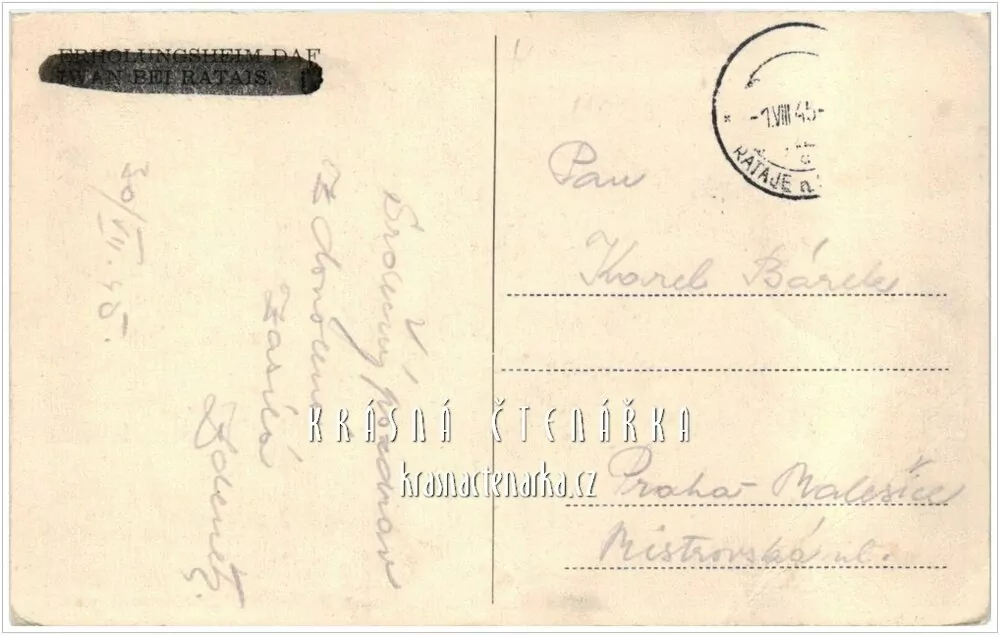 ERHOLUNGSHEIM DAF
IWAN BEI RATAIS.
30/VII. 45.
Srdečný pozdrav
z dovolené
zasílá
Zdeněk.
-1.VIII 45-
RATAJE n.
Pan
Karel Bárek
Praha - Malešice
Mistrovská ul.
KRÁSNÁ ČTENÁŘKA
krasnactenarka.cz